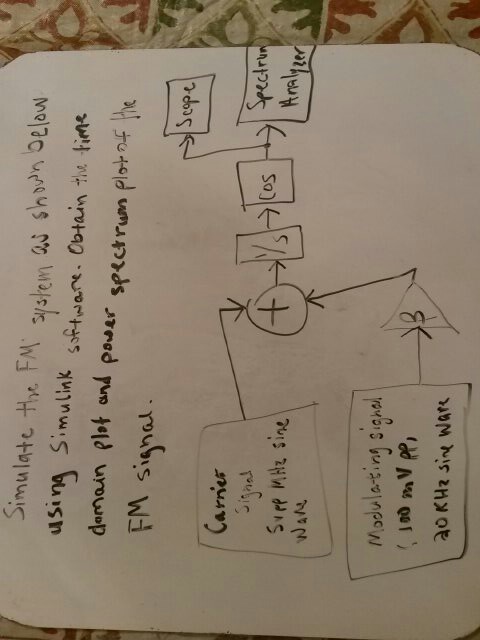 Simulate the FM system as shown below
using Simulink software. Obtain the time
domain plot and power spectrum plot of the
FM signal.
Scope
Spectrum
Analyzer
cos
1/s
+
B
Carrier
Signal
5Vpp MHz sine
Wave
Modulating signal
100 mVpp,
20 KHz sine Wave